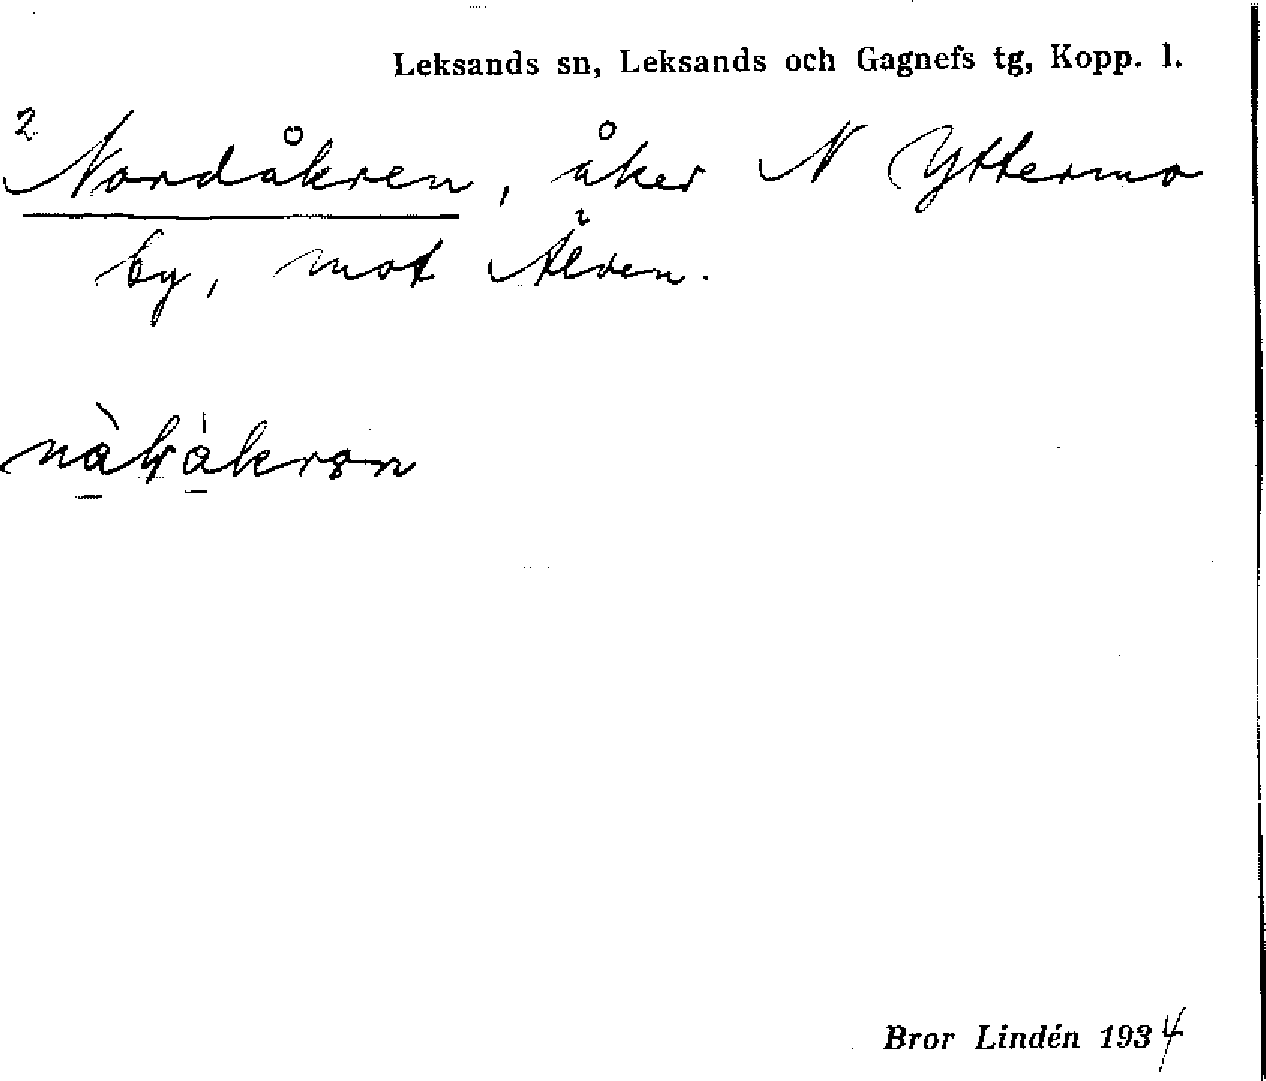 Leksands sn, Leksands och Gagnefs tg, Kopp. l.
2 Nordåkren, åker N Yttermo
by, mot Älven.
Bror Lindén 1934